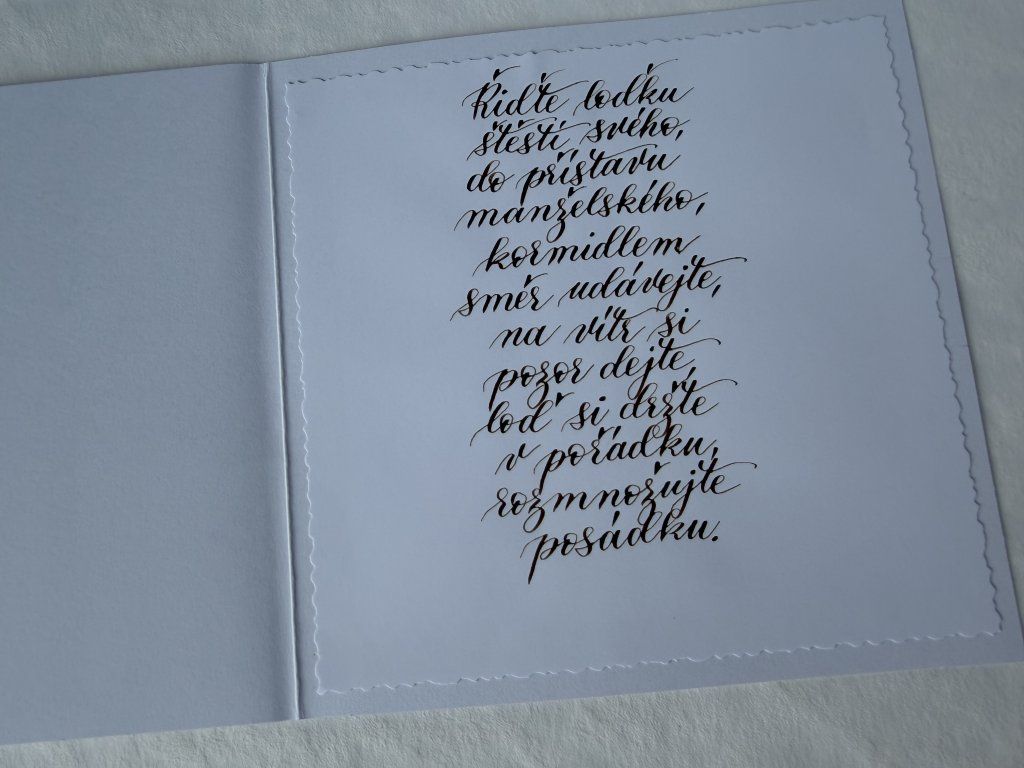 Řiďte loďku
štěstí svého,
do přístavu
manželského,
kormidlem
směr udávejte,
na vítr si
pozor dejte,
loď si držte
v pořádku,
rozmnožujte
posádku.